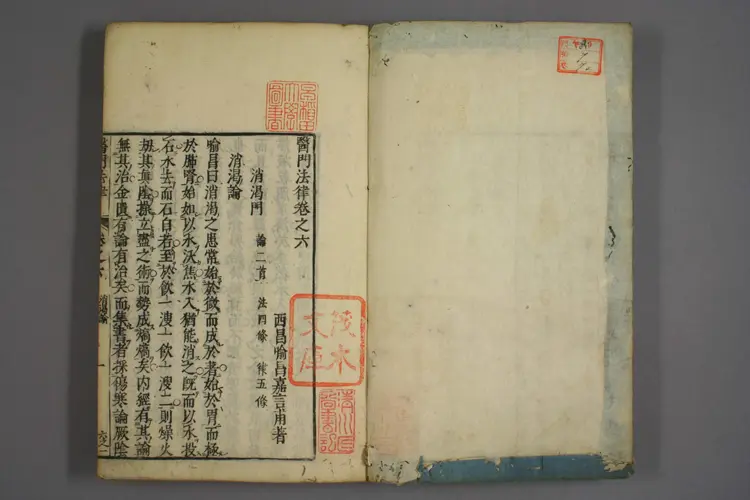 醫門法律卷之六
西昌喻昌嘉言甫著
消渴門 論二首 法四條 律五條
消渴論
喻昌曰消渴之患常始於微而成於著始於胃而極
於肺腎始如以水沃焦水入猶能消之旣而以水投
石水去而石自若至於飲一溲一飲一溲二則燥火
刼其眞陰操立盡之術而勢成熇熇矣內經有其論
無其治金匱有論有治矣而集書者採傷寒論厥陰
醫門法律
卷之六
消渴論
一
茂木
文庫
圖書